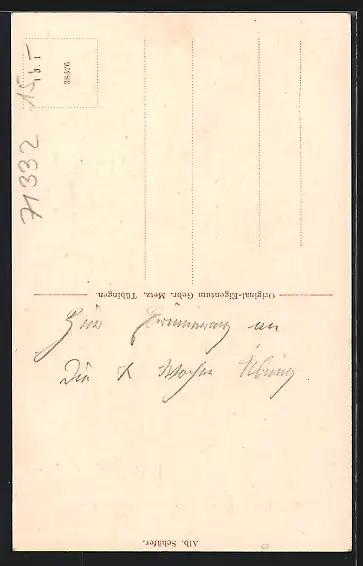 38626
15.-
71332
Original-Eigentum Gebr. Metz, Tübingen.
Zur Erinnerung an
Die Woche Übung
Alb. Schäfer.